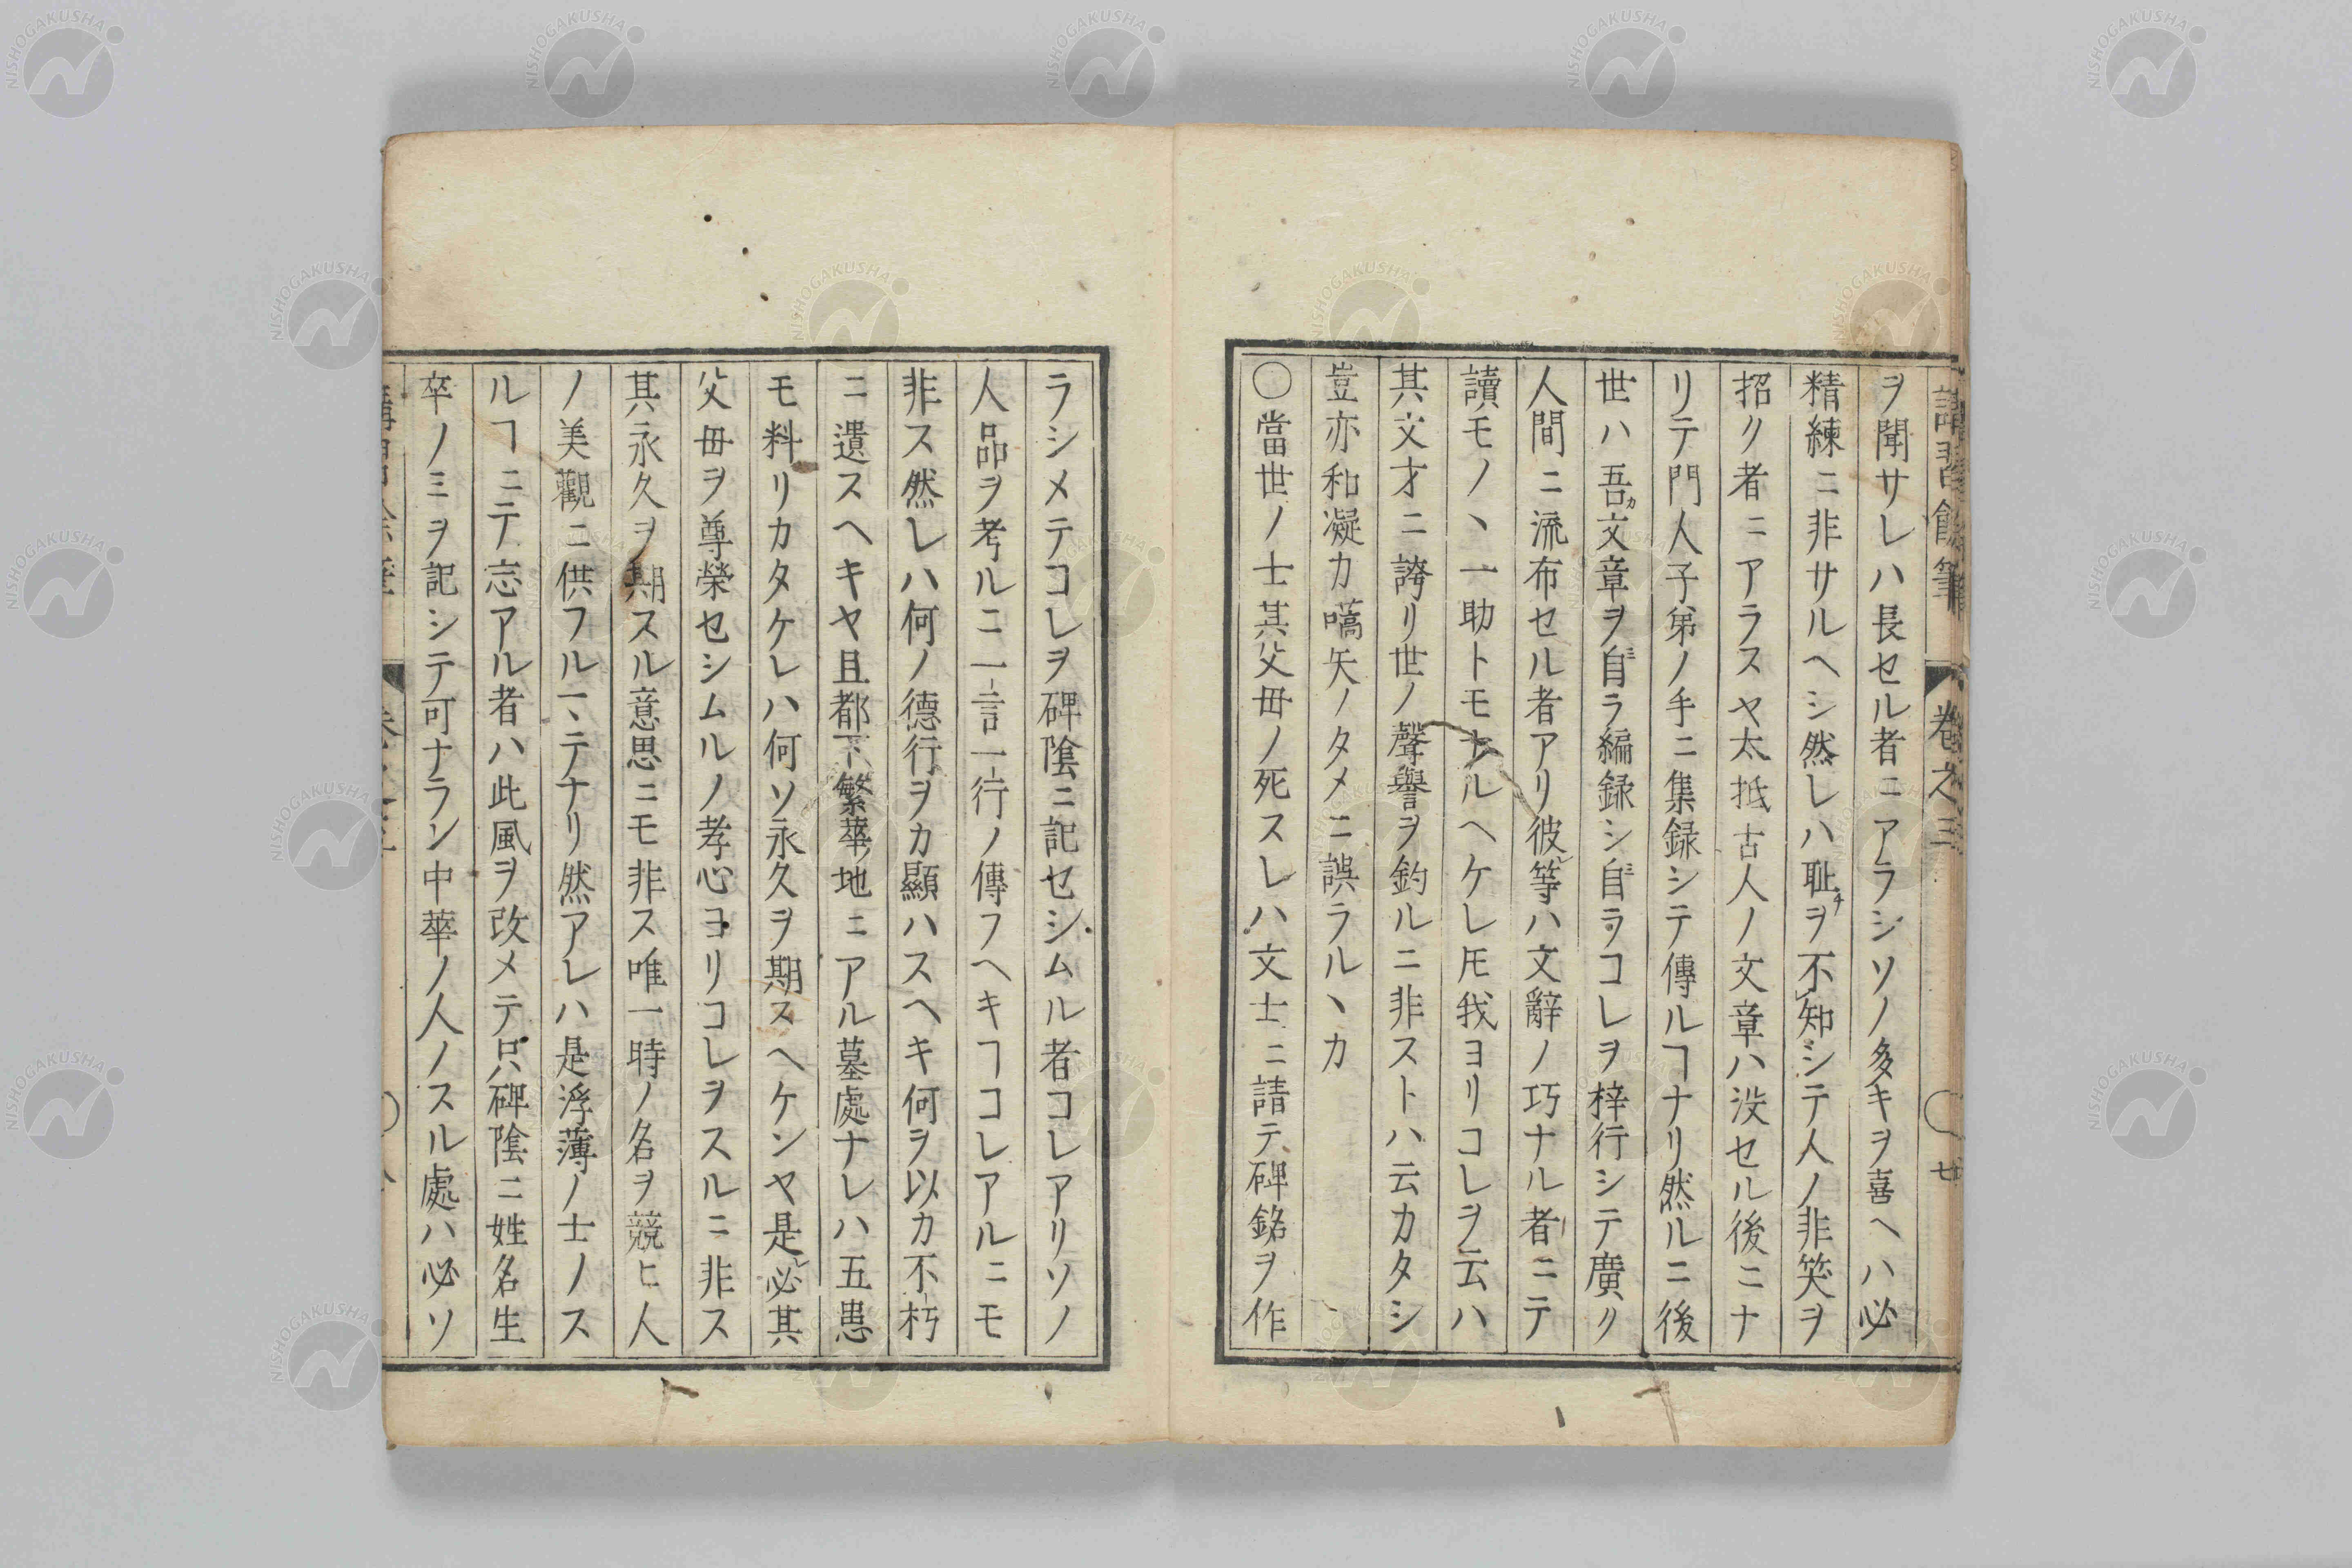 講習餘筆 卷之三 廿
ヲ聞サレハ長セル者ニアラシソノ多キヲ喜ヘハ必
精練ニ非サルヘシ然レハ耻ヲ不知シテ人ノ非笑ヲ
招ク者ニアラスヤ太抵古人ノ文章ハ没セル後ニナ
リテ門人子弟ノ手ニ集録シテ傳ルヿナリ然ルニ後
世ハ吾カ文章ヲ自ミラ編録シ自ミラコレヲ梓行シテ廣ク
人間ニ流布セル者アリ彼レ等ハ文辭ノ巧ナル者ニテ
讀モノヽ一助トモナルヘケレ𪜈我ヨリコレヲ云ハ
其文才ニ誇リ世ノ聲譽ヲ釣ルニ非ストハ云カタシ
豈亦和凝カ嚆矢ノタメニ誤ラルヽカ
〇當世ノ士其父母ノ死スレハ文士ニ請テ碑銘ヲ作
ラシメテコレヲ碑陰ニ記セシムル者コレアリソノ
人品ヲ考ルニ一言一行ノ傳フヘキヿコレアルニモ
非ス然レハ何ノ德行ヲカ顯ハスヘキ何ヲ以カ不朽
ニ遺スヘキヤ且都下繁華ノ地ニアル墓處ナレハ五患
モ料リカタケレハ何ソ永久ヲ期スヘケンヤ是レ必其
父母ヲ尊榮セシムルノ孝心ヨリコレヲスルニ非ス
其永久ヲ期スル意思ニモ非ス唯一時ノ名ヲ競ヒ人
ノ美觀ニ供フルマヽテナリ然アレハ是浮薄ノ士ノス
ルヿニテ志アル者ハ此風ヲ改メテ只碑陰ニ姓名生
卒ノミヲ記シテ可ナラン中華ノ人ノスル處ハ必ソ
NISHOGAKUSHA